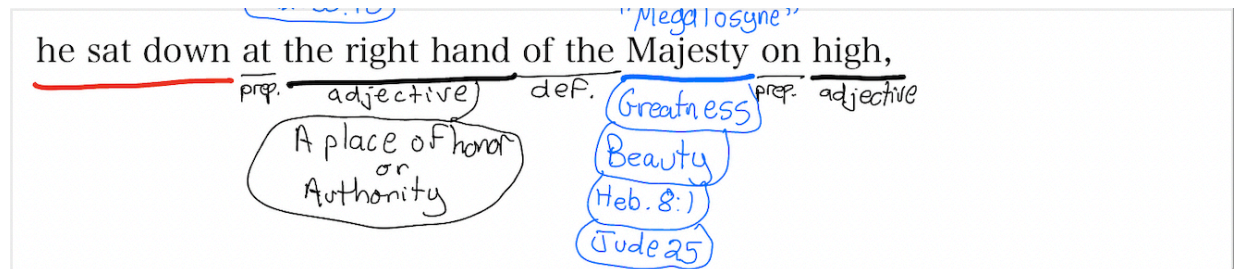 "Megalosyne"
he sat down at the right hand of the Majesty on high,
prep. adjective def. prep. adjective
Greatness
A place of honor
or
Authority
Beauty
Heb. 8:1
Jude 25